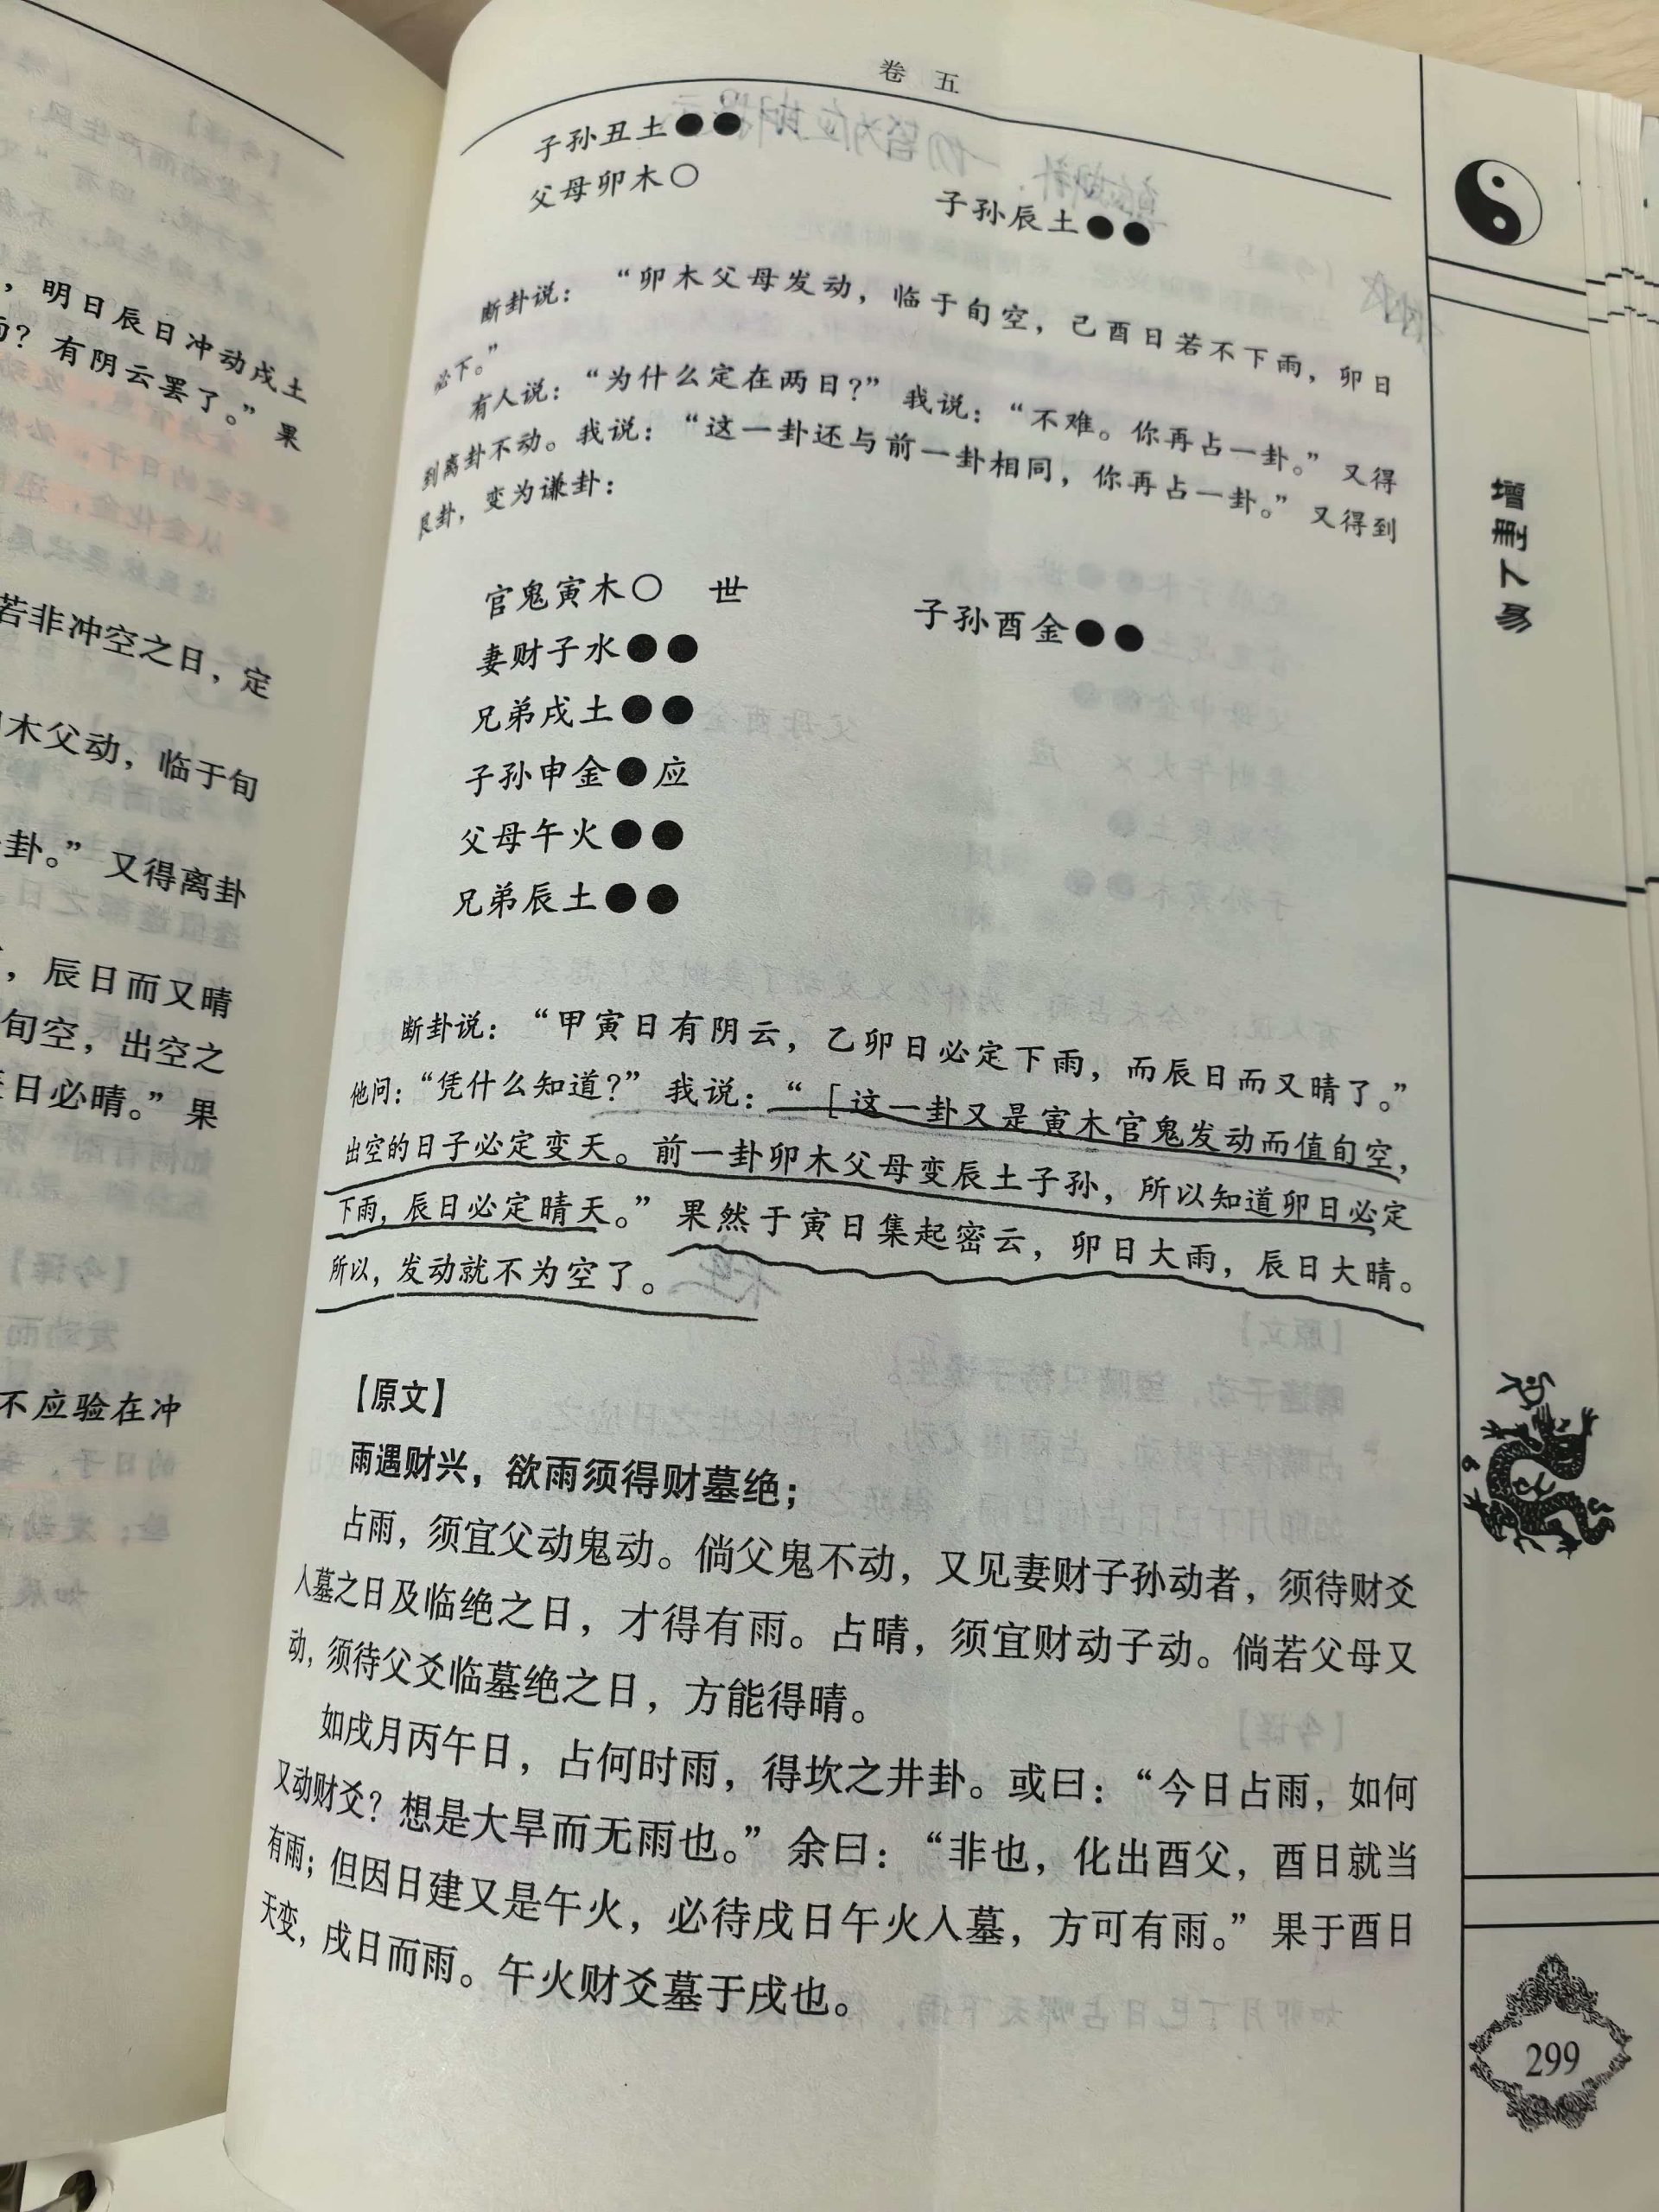 ，明日辰日冲动戌土
有阴云罢了。”果
若非冲空之日，定
木父动，临于旬
卦。”又得离卦
，辰日而又晴
旬空，出空之
日必晴。”果
不应验在冲
卷 五
子孙丑土●●
父母卯木○
子孙辰土●●
断卦说：“卯木父母发动，临于旬空，己酉日若不下雨，卯日
必下。”
有人说：“为什么定在两日？”我说：“不难。你再占一卦。”又得
到离卦不动。我说：“这一卦还与前一卦相同，你再占一卦。”又得到
艮卦，变为谦卦：
官鬼寅木○ 世
子孙酉金●●
妻财子水●●
兄弟戌土●●
子孙申金●应
父母午火●●
兄弟辰土●●
断卦说：“甲寅日有阴云，乙卯日必定下雨，而辰日而又晴了。”
他问：“凭什么知道？”我说：“［这一卦又是寅木官鬼发动而值旬空，
出空的日子必定变天。前一卦卯木父母变辰土子孙，所以知道卯日必定
下雨，辰日必定晴天。”果然于寅日集起密云，卯日大雨，辰日大晴。
所以，发动就不为空了。
【原文】
雨遇财兴，欲雨须得财墓绝；
占雨，须宜父动鬼动。倘父鬼不动，又见妻财子孙动者，须待财爻
入墓之日及临绝之日，才得有雨。占晴，须宜财动子动。倘若父母又
动，须待父爻临墓绝之日，方能得晴。
如戌月丙午日，占何时雨，得坎之井卦。或曰：“今日占雨，如何
又动财爻？想是大旱而无雨也。”余曰：“非也，化出酉父，酉日就当
有雨；但因日建又是午火，必待戌日午火入墓，方可有雨。”果于酉日
天变，戌日而雨。午火财爻墓于戌也。
增删卜易
299